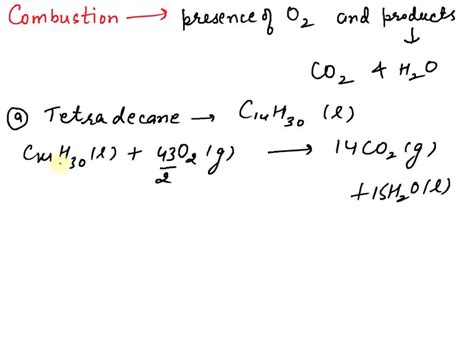 Combustion → presence of O₂ and products
↓
CO₂ & H₂O
ⓐ Tetradecane → C₁₄H₃₀ (l)
C₁₄H₃₀ (l) + 43/2 O₂ (g) → 14CO₂ (g)
+ 15H₂O (l)